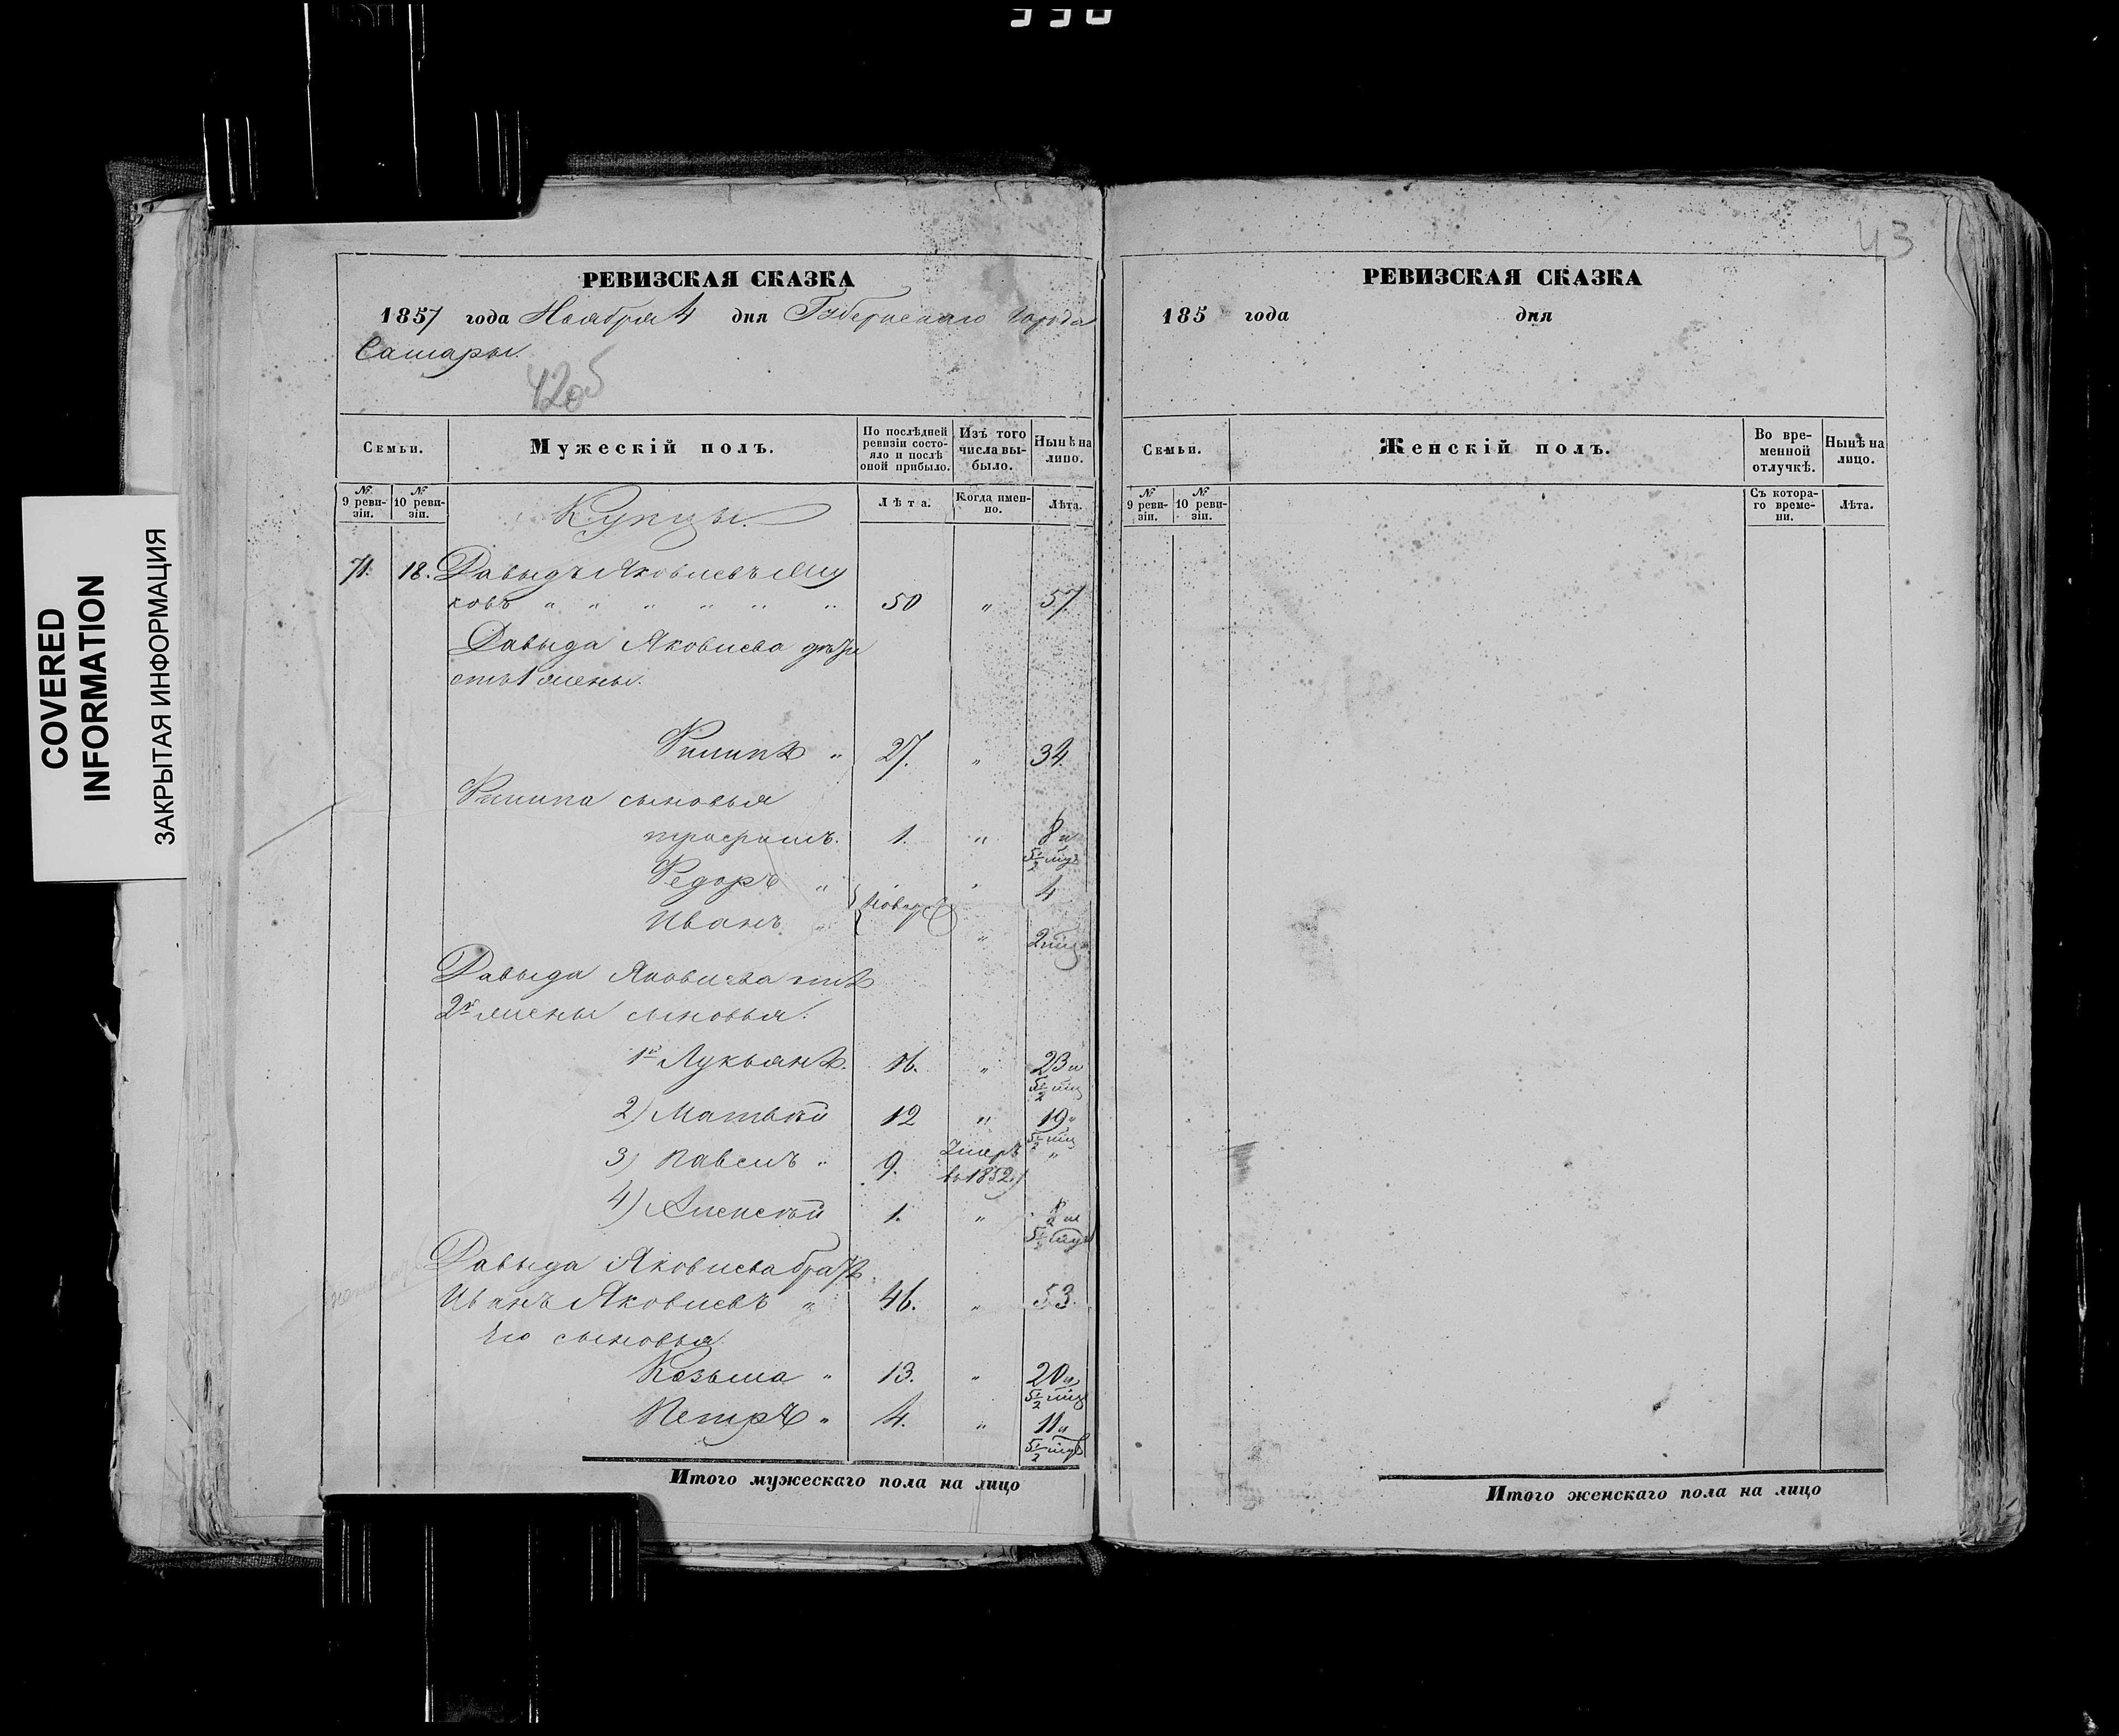 COVERED
INFORMATION
ЗАКРЫТАЯ ИНФОРМАЦИЯ
РЕВИЗСКАЯ СКАЗКА
1857 года Ноября 4 дня Губернскаго города
Самары.
42об
Семьи.
Мужескій полъ.
По послѣдней ревизіи состояло и послѣ оной прибыло.
Изъ того числа выбыло.
Нынѣ на лицо.
№ 9 ревизіи.
№ 10 ревизіи.
Лѣта.
Когда именно.
Лѣта.
Купцы.
71. 18. Давыдъ Яковлевъ
ковъ " " " " " " 50 " 57
Давыда Яковлева
жены.
Филипъ " 27. " 34.
Филипа сыновья
1. " 8 и
5 1/2 мцъ
Федоръ " " 4
новор
Иванъ " " 2 мца
Давыда Яковлева отъ
2й жены сыновья.
1й Лукьянъ. 16. " 23 и
5 1/2 мц
2) Матвѣй 12 " 19 "
5 1/2 мц
3) Павелъ " 9. Умеръ "
въ 1852 г
4) Алексѣй 1. " 8 и
5 1/2 мцъ
Давыда Яковлева братъ
Иванъ Яковлевъ " 46. " 53.
Его сыновья
Козьма " 13. " 20 и
5 1/2 мцъ
Петръ " 4. " 11 и
5 1/2 мцъ
Итого мужескаго пола на лицо
43
РЕВИЗСКАЯ СКАЗКА
185 года дня
Семьи.
Женскій полъ.
Во временной отлучкѣ.
Нынѣ на лицо.
№ 9 ревизіи.
№ 10 ревизіи.
Съ котораго времени.
Лѣта.
Итого женскаго пола на лицо